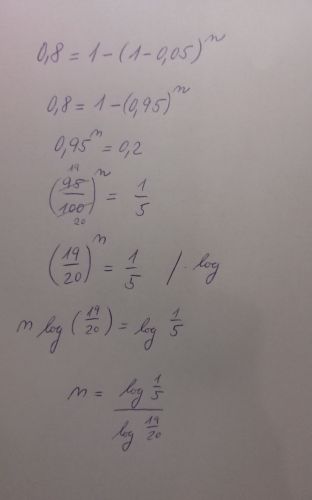 0,8 = 1 - (1 - 0,05)^n
0,8 = 1 - (0,95)^n
0,95^n = 0,2
(95/100)^n = 1/5
19
20
(19/20)^n = 1/5 /· log
n log (19/20) = log 1/5
n = log 1/5 / log 19/20